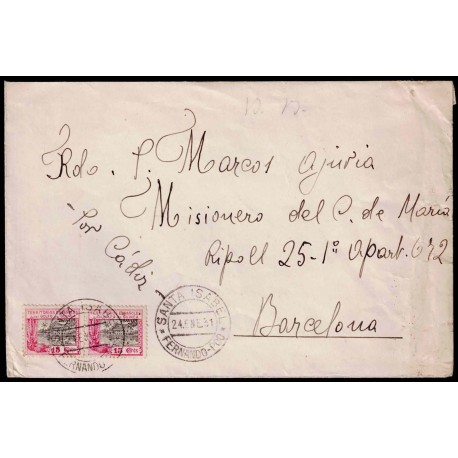 Rdo. P. Marcos Ajuria
Misionero del C. de María
Ripoll 25-1º Apart. 642
Barcelona
Por Cádiz
SANTA ISABEL
24.ENE.51
FERNANDO-POO
15 Cts